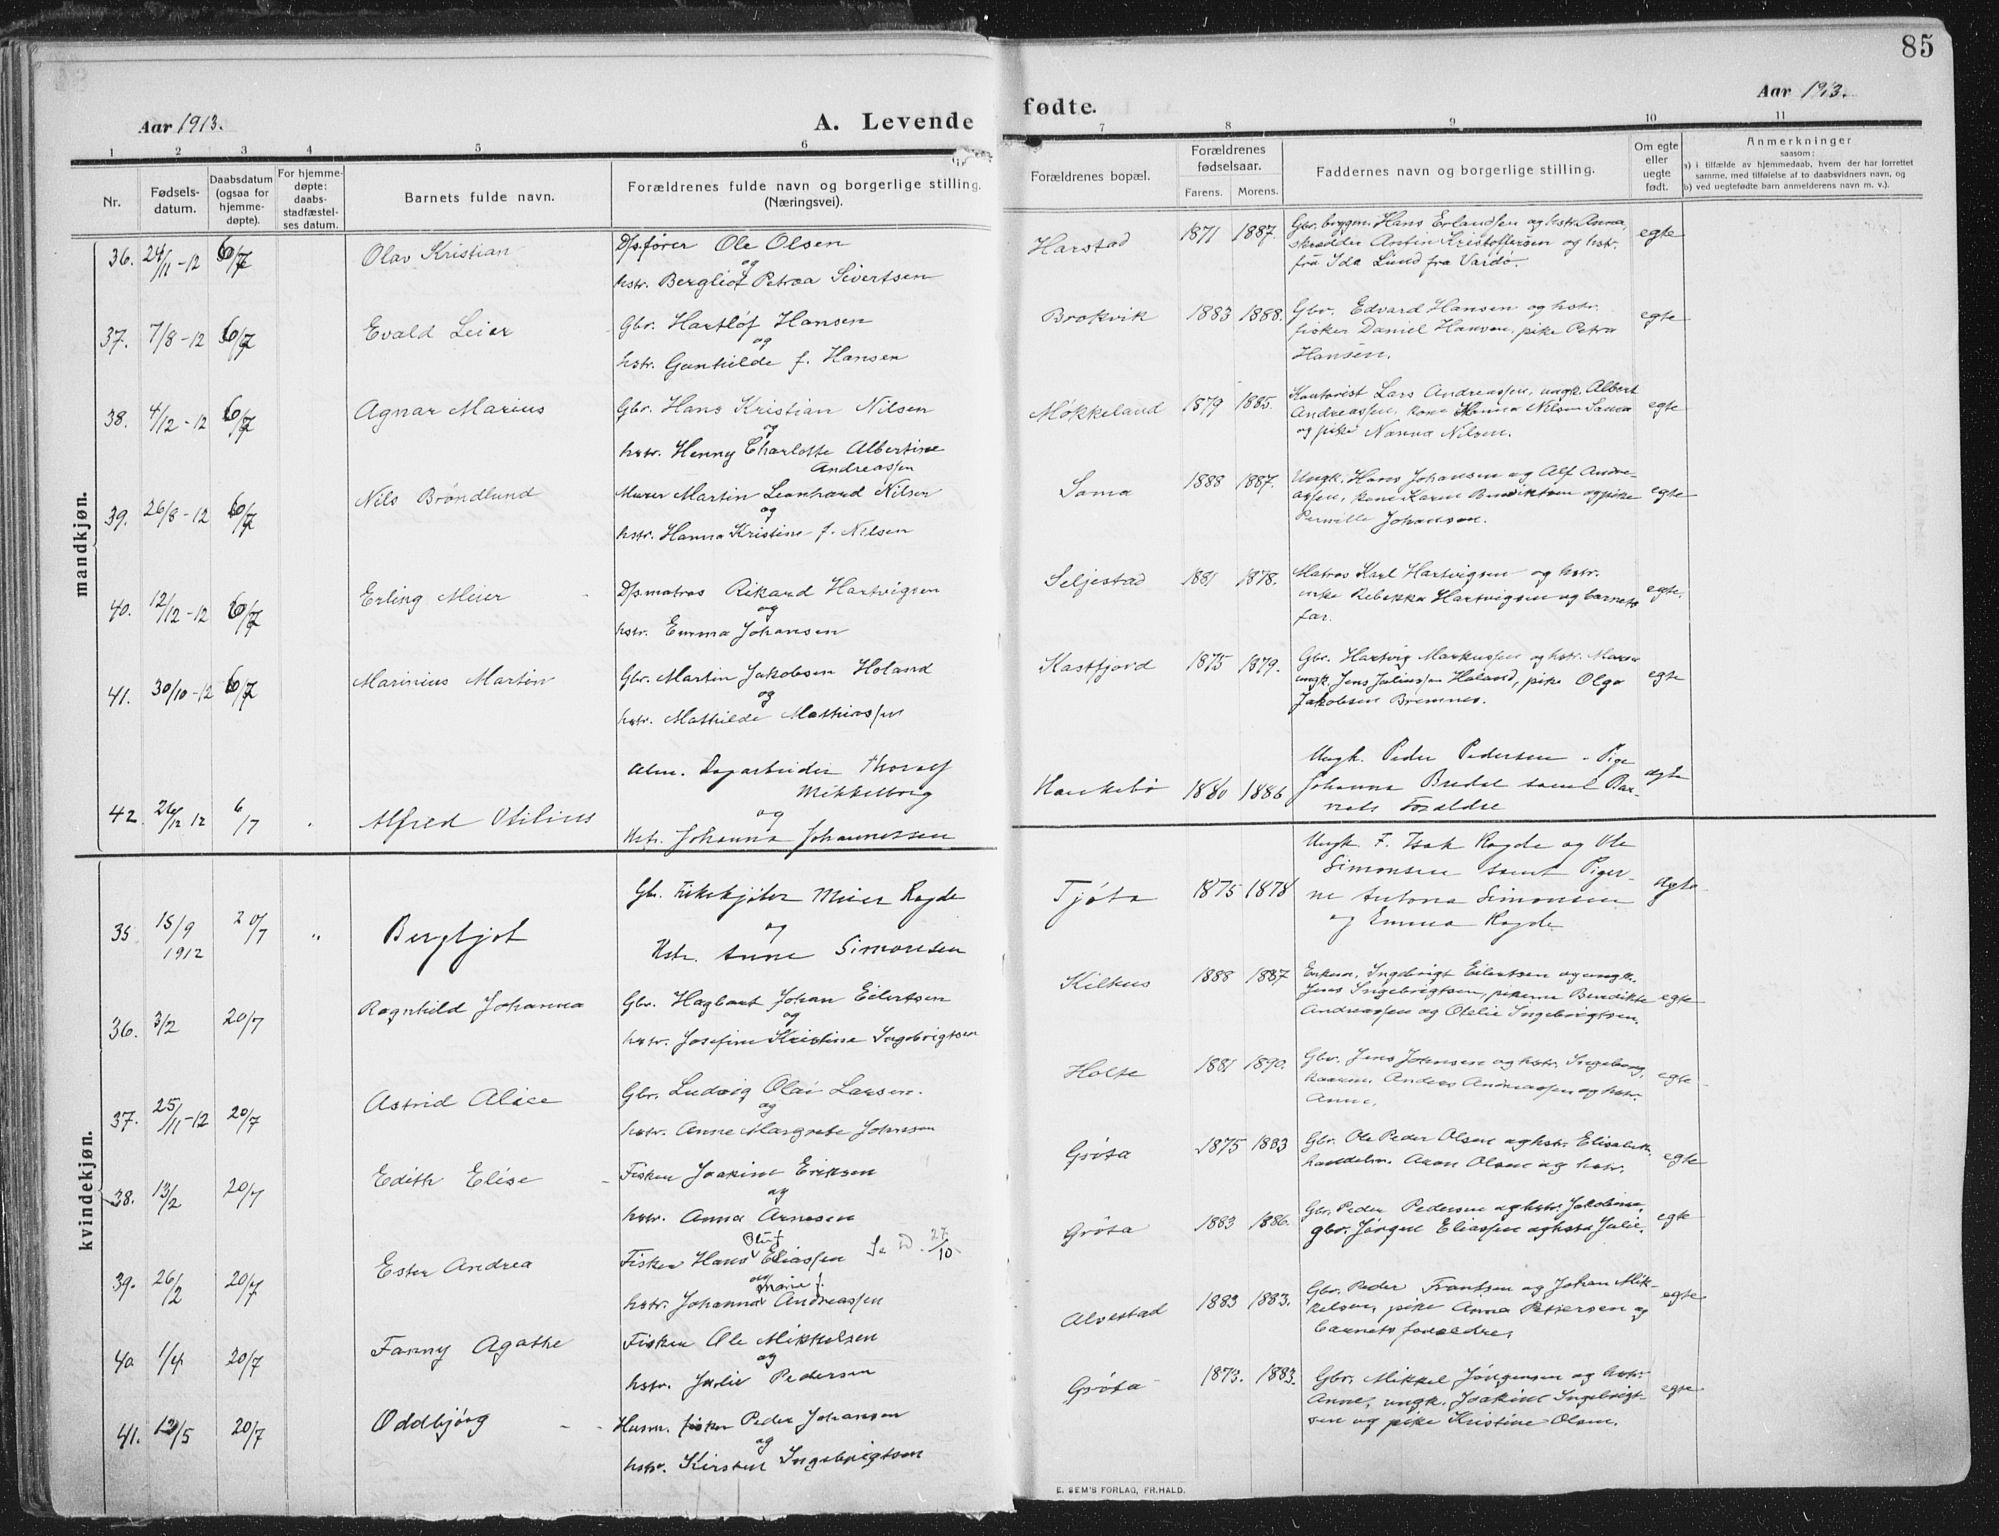 85
Aar 1913.
A. Levende fødte.
Aar 1913.
1 2 3 4 5 6 7 8 9 10 11
Nr.
Fødsels-
datum.
Daabsdatum
(ogsaa for
hjemme-
døpte).
For hjemme-
døpte:
daabs-
stadfæstel-
ses datum.
Barnets fulde navn.
Forældrenes fulde navn og borgerlige stilling.
(Næringsvei).
Forældrenes bopæl.
Forældrenes
fødselsaar.
Farens. Morens.
Faddernes navn og borgerlige stilling.
Om egte
eller
uegte
født.
Anmerkninger
saasom:
a) i tilfælde av hjemmedaab, hvem der har forrettet
samme, med tilføielse af to daabsvidners navn, og
b) ved uegtefødte barn anmelderens navn m. v.).
mandkjøn.
36. 24/11-12 6/7 Olav Kristian
D/s.fører Ole Olsen
og
hstr. Bergliot Petrea Sivertsen
Harstad 1871 1887.
Gbr. brygm. Hans Erlandsen og hstr. Anna,
skrædder Antin Kristoffersen og hstr.
frü Ida Lünd fra Vardø.
egte
37. 7/8-12 6/7 Evald Leier
Gbr. Hartløf Hansen
og
hstr. Gunhilde f. Hansen
Brokvik 1883 1888.
Gbr. Edvard Hansen og hstr.
fisker Daniel Hansen, pike Petra
Hansen.
egte
38. 4/12-12 6/7 Agnar Marius
Gbr. Hans Kristian Nilsen
og
hstr. Henny Charlotte Albertine
Andreassen
Møkkeland 1879 1885.
Lars Andreassen, ungk. Albert
Andreassen, kone Hanna Nilsen Sama
og pike Nanna Nilsen.
egte
39. 26/8-12 6/7 Nils Brøndlund
Murer Martin Leonhard Nilsen
og
hstr. Hanna Kristine f. Nilsen
Sama 1888 1887.
Ungk. Hans Johansen og Alf Andre-
assen, kone Karen Benediktsen og pike
Pernille Johansen.
egte
40. 12/12-12 6/7 Erling Meier
D/s.matros Rikard Hartvigsen
og
hstr. Emma Johansen
Seljestad 1881 1878.
Matros Karl Hartvigsen og hstr.
enke Rebekka Hartvigsen og barnets
far.
egte.
41. 30/10-12 6/7 Marinius Martin
Gbr. Martin Jakobsen Holand
og
hstr. Mathilde Mathiassen
Kastfjord 1875 1879.
Gbr. Hartvig Markussen og hstr. Maren
ungk. Jens Juliussen Holand, pike Olga
Jakobsen Bremnes.
egte
42. 26/12 12 6/7 Alfred Otilius
Alm. Dagarbeider Thoralf
Mikkelborg
og
Hstr. Johanna Johannessen
Haukebø 1880 1886
Ungk. Peder Pedersen - Pige
Johanna Bredal samt Bar-
nets Forældre
ægte
kvindekjøn.
35 15/9 1912 20/7 " Bergljot
Gb. Meier Ragde
og
Hstr. Anne Simonsen
Tjøta 1875 1878
Ungk. F. Isak Ragde og Ole
Simonsen samt Piger-
ne Antona Simonsen
og Emma Ragde
ægte
36. 3/2 20/7 Ragnhild Johanna
Gbr. Hagbart Johan Eilertsen
og
hstr. Josefine Kristine Ingebrigtsen
Kilhus 1888 1887
Enkem. Ingebrigt Eilertsen og ungk.
Jens Ingebrigtsen, pikerne Benedikte
Andreassen og Otelie Ingebrigtsen.
egte
37. 25/11-12 20/7 Astrid Alice
Gbr. Ludvig Olai Larsen.
og
hstr. Anne Margrete Johnsen
Holte 1881 1890.
Gbr. Jens Johnsen og hstr. Ingeborg,
kaarm. Anders Andreassen og hstr.
Anne.
egte
38. 13/2 20/7 Edith Elise
Fisker Joakim Eriksen
og
hstr. Anna Arnesen
Grøta 1875 1883
Gbr. Ole Peder Olsen og hstr. Elisabeth,
handelsm. Aron Olsen og hstr.
egte
39. 26/2 20/7 Ester Andrea
Fisker Hans Eliassen Se D. 27/10
og
Marie f.
hstr. Johanna Andreassen
Grøta 1883 1886.
Gbr. Peder Pedersen og hstr. Jakobine,
gbr. Jørgen Eliassen og hstr. Julie.
egte
40 1/4 20/7 Fanny Agathe
Fisker Ole Mikkelsen
og
hstr. Julie Pedersen
Alvestad 1883 1883.
Gbr. Peder Frantsen og Johan Mik-
kelsen, pike Anna Pettersen og
barnets forældre,
egte
41. 12/5 20/7 Oddbjørg
Husm. fisker Peder Johansen
og
hstr. Kirsten Ingebrigtsen
Grøta 1873. 1883.
Gbr. Mikkel Jørgensen og hstr.
Anne, ungk. Joakim Ingebrigt-
sen og pike Kristine Olsen.
egte
E. SEM'S FORLAG, FR.HALD.